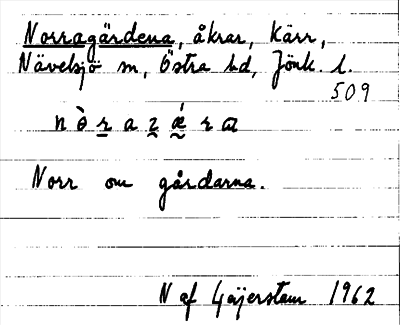 Norragärdena, åkrar, kärr,
Nävelsjö sn, Östra hd, Jönk. l.
509
n ò r a z ǽ r a
Norr om gårdarna.
N af Geijerstam 1962